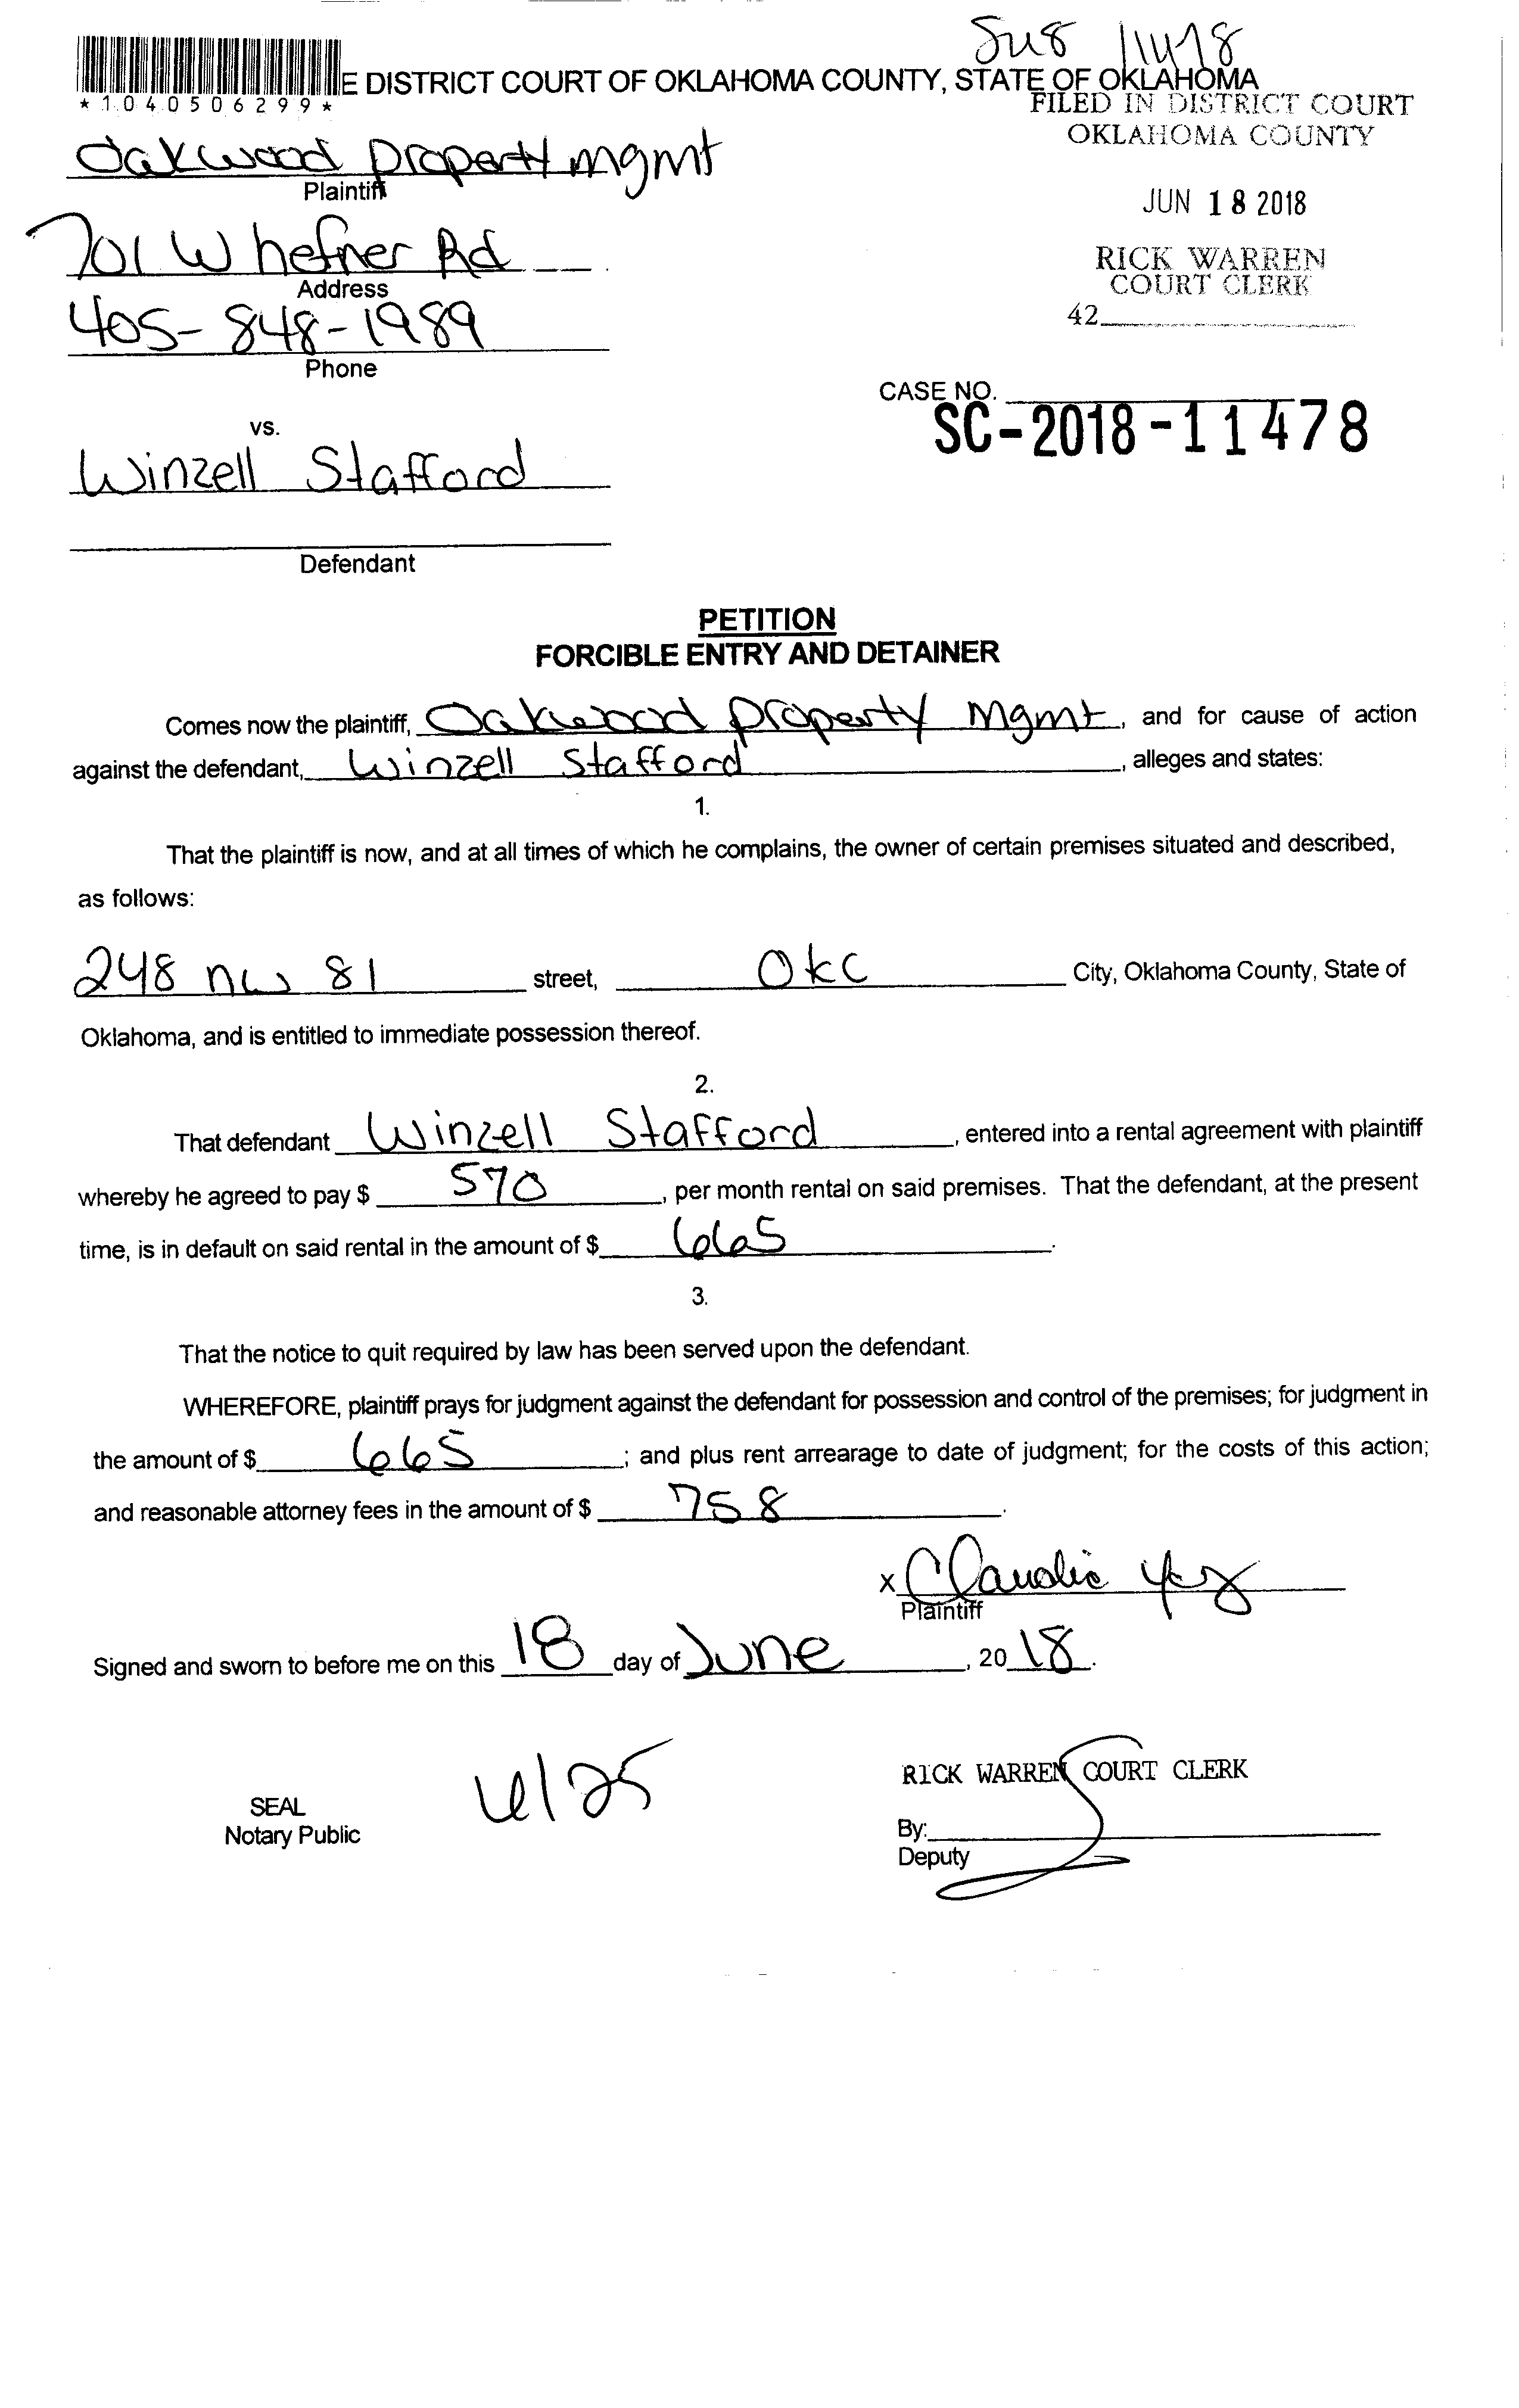 SC 18 11478
E DISTRICT COURT OF OKLAHOMA COUNTY, STATE OF OKLAHOMA
*1040506299*
FILED IN DISTRICT COURT
OKLAHOMA COUNTY
Oakwood property mgmt
Plaintiff
JUN 18 2018
701 W hefner Rd
Address
RICK WARREN
COURT CLERK
405-848-1989
Phone
42
CASE NO.
SC-2018-11478
vs.
Winzell Stafford
Defendant
PETITION
FORCIBLE ENTRY AND DETAINER
Comes now the plaintiff, Oakwood property Mgmt, and for cause of action
against the defendant, Winzell Stafford, alleges and states:
1.
That the plaintiff is now, and at all times of which he complains, the owner of certain premises situated and described,
as follows:
248 nw 81 street, OKC City, Oklahoma County, State of
Oklahoma, and is entitled to immediate possession thereof.
2.
That defendant Winzell Stafford, entered into a rental agreement with plaintiff
whereby he agreed to pay $ 570, per month rental on said premises. That the defendant, at the present
time, is in default on said rental in the amount of $ 665.
3.
That the notice to quit required by law has been served upon the defendant.
WHEREFORE, plaintiff prays for judgment against the defendant for possession and control of the premises; for judgment in
the amount of $ 665; and plus rent arrearage to date of judgment; for the costs of this action;
and reasonable attorney fees in the amount of $ 758.
x Claudia
Plaintiff
Signed and sworn to before me on this 18 day of June, 2018.
6/25
RICK WARREN COURT CLERK
SEAL
Notary Public
By:
Deputy